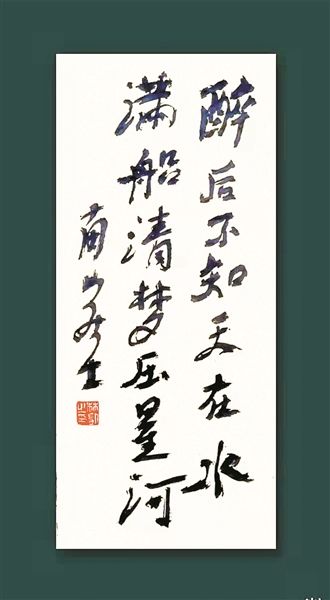 醉后不知天在水
满船清梦压星河
南山